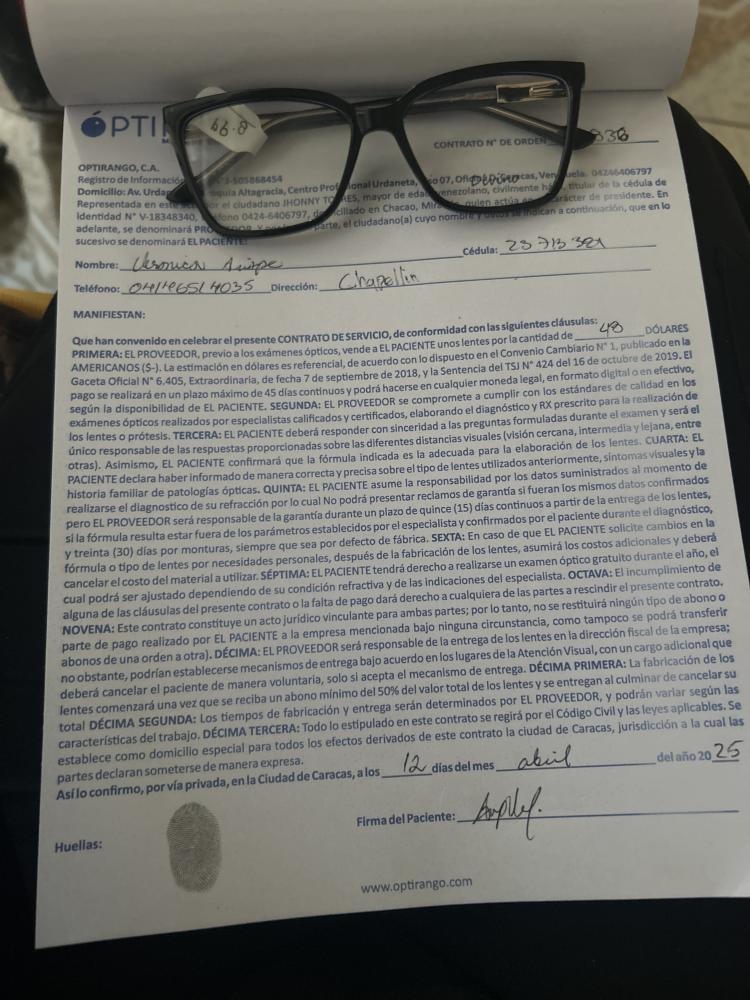 ÓPTI
66.8
CONTRATO N° DE ORDEN 836
OPTIRANGO, C.A.
Registro de Información J-505868454
Domicilio: Av. Urdaneta Altagracia, Centro Profesional Urdaneta, piso 07, Caracas, Venezuela. 04246406797
Representada en este por el ciudadano JHONNY TORRES, mayor de edad venezolano, civilmente titular de la cédula de
Identidad N° V-18348340, 0424-6406797, domiciliado en Chacao, quien actúa carácter de presidente. En
adelante, se denominará parte, el ciudadano(a) cuyo nombre y datos se indican a continuación, que en lo
sucesivo se denominará EL PACIENTE:
Nombre: Cédula: 23 713 321
Teléfono: Dirección: Chapellin
MANIFIESTAN:
Que han convenido en celebrar el presente CONTRATO DE SERVICIO, de conformidad con las siguientes cláusulas:
PRIMERA: EL PROVEEDOR, previo a los exámenes ópticos, vende a EL PACIENTE unos lentes por la cantidad de 48 DÓLARES
AMERICANOS ($-). La estimación en dólares es referencial, de acuerdo con lo dispuesto en el Convenio Cambiario N° 1, publicado en la
Gaceta Oficial N° 6.405, Extraordinaria, de fecha 7 de septiembre de 2018, y la Sentencia del TSJ N° 424 del 16 de octubre de 2019. El
pago se realizará en un plazo máximo de 45 días continuos y podrá hacerse en cualquier moneda legal, en formato digital o en efectivo,
según la disponibilidad de EL PACIENTE. SEGUNDA: EL PROVEEDOR se compromete a cumplir con los estándares de calidad en los
exámenes ópticos realizados por especialistas calificados y certificados, elaborando el diagnóstico y RX prescrito para la realización de
los lentes o prótesis. TERCERA: EL PACIENTE deberá responder con sinceridad a las preguntas formuladas durante el examen y será el
único responsable de las respuestas proporcionadas sobre las diferentes distancias visuales (visión cercana, intermedia y lejana, entre
otras). Asimismo, EL PACIENTE confirmará que la fórmula indicada es la adecuada para la elaboración de los lentes. CUARTA: EL
PACIENTE declara haber informado de manera correcta y precisa sobre el tipo de lentes utilizados anteriormente, síntomas visuales y la
historia familiar de patologías ópticas. QUINTA: EL PACIENTE asume la responsabilidad por los datos suministrados al momento de
realizarse el diagnostico de su refracción por lo cual No podrá presentar reclamos de garantía si fueran los mismos datos confirmados
pero EL PROVEEDOR será responsable de la garantía durante un plazo de quince (15) días continuos a partir de la entrega de los lentes,
si la fórmula resulta estar fuera de los parámetros establecidos por el especialista y confirmados por el paciente durante el diagnóstico,
y treinta (30) días por monturas, siempre que sea por defecto de fábrica. SEXTA: En caso de que EL PACIENTE solicite cambios en la
fórmula o tipo de lentes por necesidades personales, después de la fabricación de los lentes, asumirá los costos adicionales y deberá
cancelar el costo del material a utilizar. SÉPTIMA: EL PACIENTE tendrá derecho a realizarse un examen óptico gratuito durante el año, el
cual podrá ser ajustado dependiendo de su condición refractiva y de las indicaciones del especialista. OCTAVA: El incumplimiento de
alguna de las cláusulas del presente contrato o la falta de pago dará derecho a cualquiera de las partes a rescindir el presente contrato.
NOVENA: Este contrato constituye un acto jurídico vinculante para ambas partes; por lo tanto, no se restituirá ningún tipo de abono o
parte de pago realizado por EL PACIENTE a la empresa mencionada bajo ninguna circunstancia, como tampoco se podrá transferir
abonos de una orden a otra). DÉCIMA: EL PROVEEDOR será responsable de la entrega de los lentes en la dirección fiscal de la empresa;
no obstante, podrían establecerse mecanismos de entrega bajo acuerdo en los lugares de la Atención Visual, con un cargo adicional que
deberá cancelar el paciente de manera voluntaria, solo si acepta el mecanismo de entrega. DÉCIMA PRIMERA: La fabricación de los
lentes comenzará una vez que se reciba un abono mínimo del 50% del valor total de los lentes y se entregan al culminar de cancelar su
total DÉCIMA SEGUNDA: Los tiempos de fabricación y entrega serán determinados por EL PROVEEDOR, y podrán variar según las
características del trabajo. DÉCIMA TERCERA: Todo lo estipulado en este contrato se regirá por el Código Civil y las leyes aplicables. Se
establece como domicilio especial para todos los efectos derivados de este contrato la ciudad de Caracas, jurisdicción a la cual las
partes declaran someterse de manera expresa.
Así lo confirmo, por vía privada, en la Ciudad de Caracas, a los 12 días del mes abril del año 2025
Firma del Paciente:
Huellas:
www.optirango.com